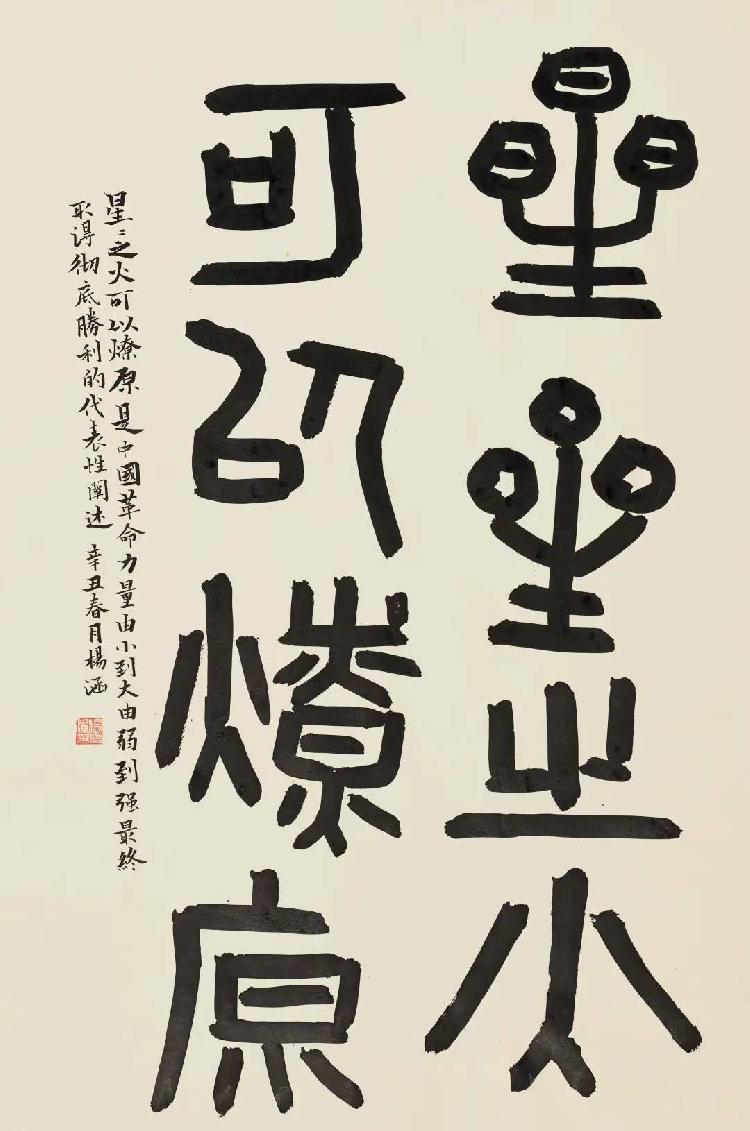 星星之火
可以燎原
星〻之火可以燎原是中國革命力量由小到大由弱到强最終
取得彻底勝利的代表性闡述 辛丑春月楊涵